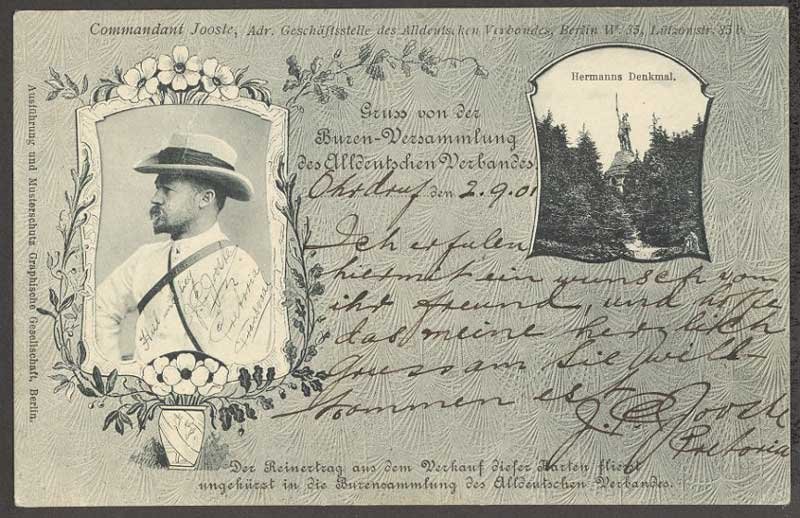 Commandant Jooste, Adr. Geschäftsstelle des Alldeutschen Verbandes, Berlin W. 35, Lützowstr. 85 b.
Hermanns Denkmal.
Gruss von der
Buren-Versammlung
des Alldeutschen Verbandes.
Ohrdruf den 2.9.01
Ich erfulen
hiermit ein wunsch von
ihr freund, und hoffe
das meine herzlich
Gruss am Sie will
kommen est
J. P. Jooste
Pretoria
Jooste
Pretoria
Transvaal
Der Reinertrag aus dem Verkauf dieser Karten fliesst
ungekürzt in die Burensammlung des Alldeutschen Verbandes.
Ausführung und Musterschutz Graphische Gesellschaft, Berlin.